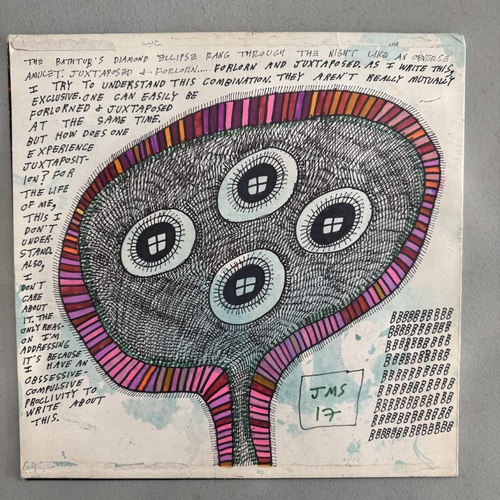 THE BATHTUB'S DIAMOND ELLIPSE RANG THROUGH THE NIGHT LIKE AN OBVERSE
AMULET. JUXTAPOSED & FORLORN.... FORLORN AND JUXTAPOSED. AS I WRITE THIS,
I TRY TO UNDERSTAND THIS COMBINATION. THEY AREN'T REALLY MUTUALLY
EXCLUSIVE. ONE CAN EASILY BE
FORLORNED & JUXTAPOSED
AT THE SAME TIME.
BUT HOW DOES ONE
EXPERIENCE
JUXTAPOSIT-
ION? FOR
THE LIFE
OF ME,
THIS I
DON'T
UNDER-
STAND.
ALSO,
I
DON'T
CARE
ABOUT
IT. THE
ONLY REAS-
ON I'M
ADDRESSING
IT'S BECAUSE
I HAVE AN
OBSSESSIVE-
COMPULSIVE
PROCLIVITY TO
WRITE ABOUT
THIS.
JMS
17